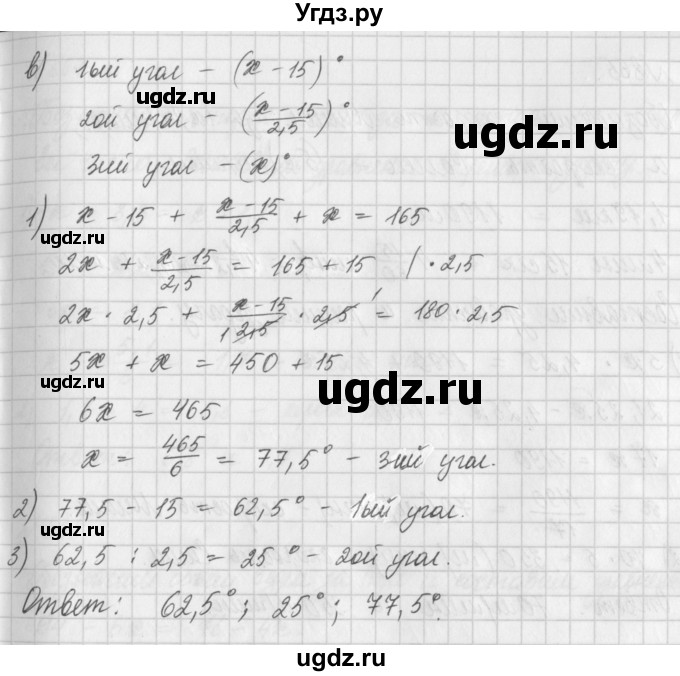 Угдз.ру
в) 1ый угол – (x – 15)°
ugdz.ru
2ой угол – ((x – 15)/2,5)°
ugdz.ru
3ий угол – (x)°
1) x – 15 + (x – 15)/2,5 + x = 165
2x + (x – 15)/2,5 = 165 + 15 / · 2,5
2x · 2,5 + (x – 15)/2,5 · 2,5 = 180 · 2,5
5x + x = 450 + 15
ugdz.ru
ugdz.ru
6x = 465
x = 465/6 = 77,5° – 3ий угол.
2) 77,5 – 15 = 62,5° – 1ый угол.
3) 62,5 : 2,5 = 25° – 2ой угол.
Ответ: 62,5°; 25°; 77,5°.
ugdz.ru
ugdz.ru